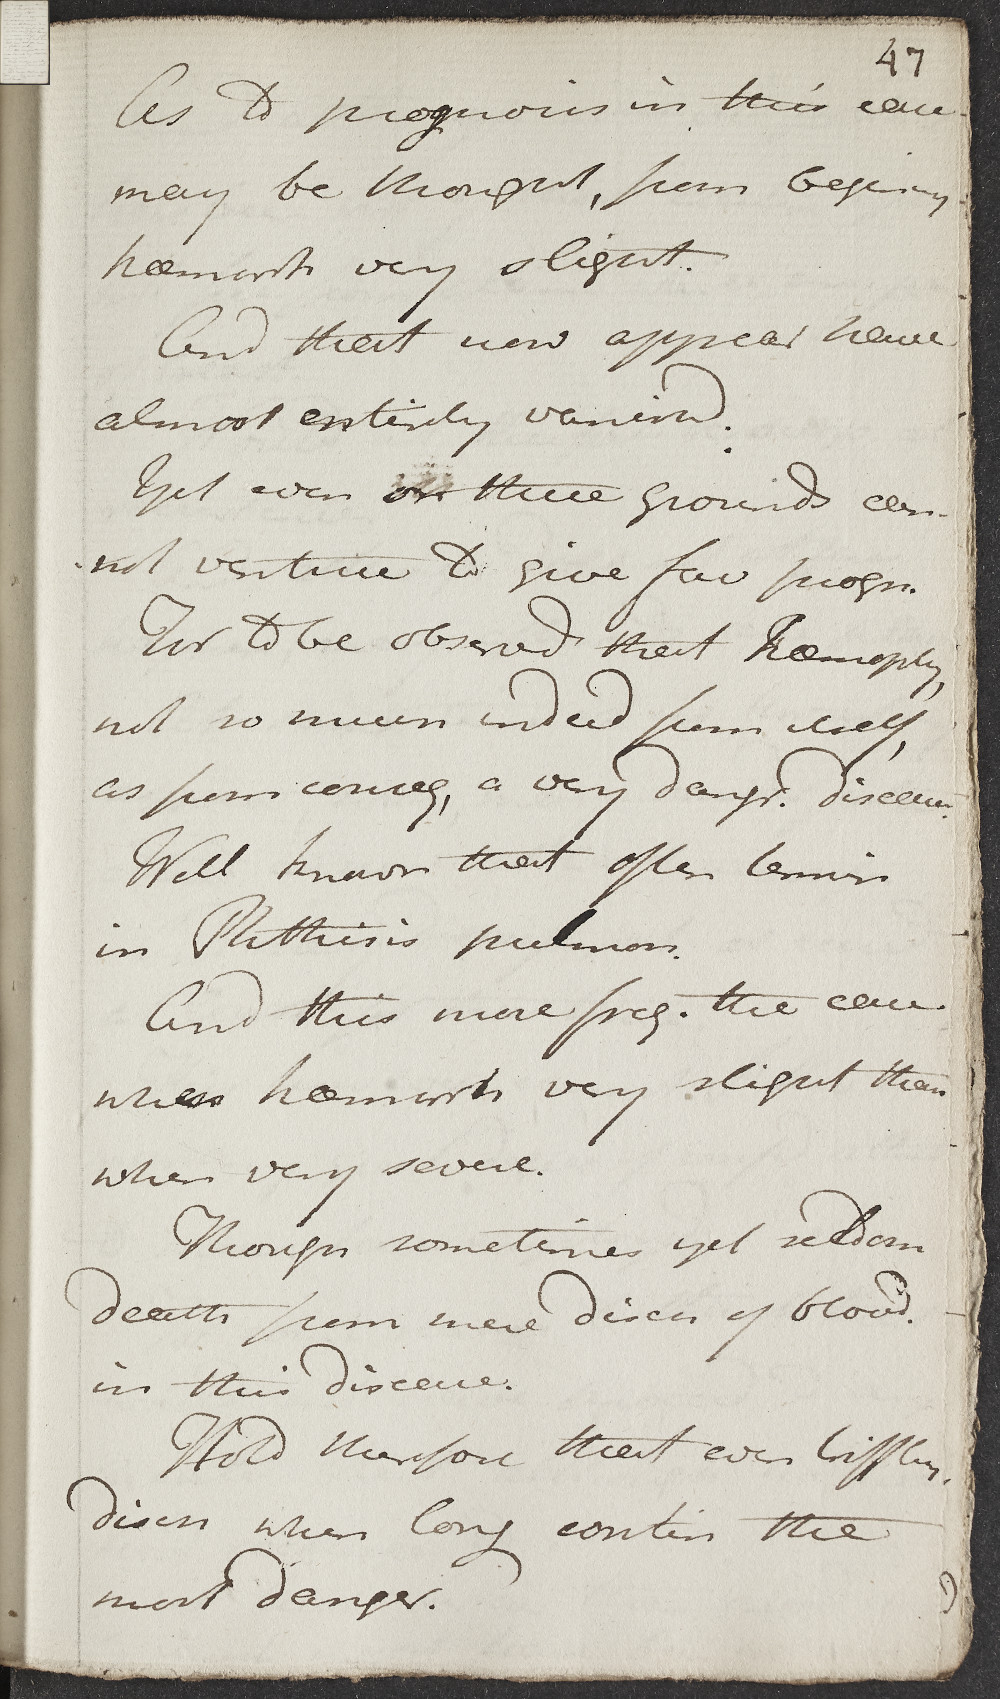 47
As to prognosis in this case
may be thought, from beginning
hæmorrh very slight.
And that now appear have
almost entirely vanishd.
Yet even on these grounds can-
not venture to give fav progn.
For to be observed that Hæmopty,
not so much indeed from itself,
as from conseq, a very dangr. disease.
Well known that often termin
in Phthisis pulmon.
And this more freq. the case
when hæmorrh very slight than
when very severe.
Though sometimes yet seldom
death from mere disch of blood.
in this disease.
Hold therefore that even triffling.
disch when long contin the
most danger.